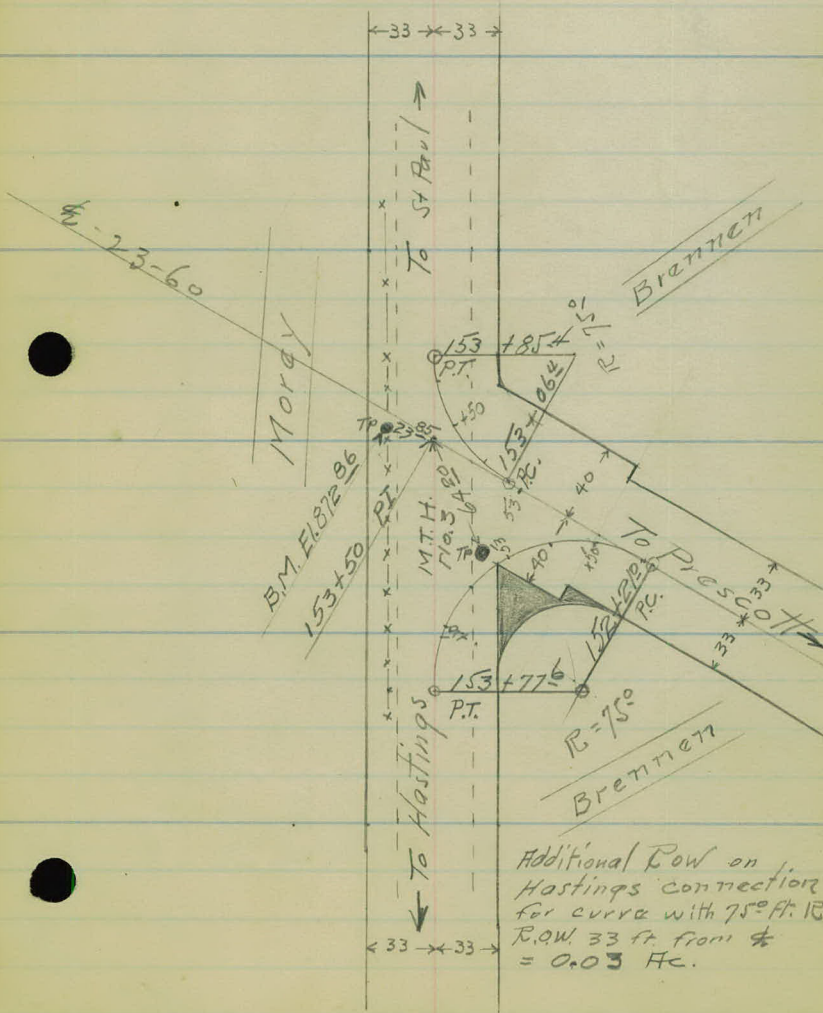 33 33
To St Paul
℄-23-60
Brennen
Moray
R=75°
153 +85.4
P.T.
+50
153+06.4
P.C.
53
TP 23.85
B.M. El. 872.86
PI
153+50
M.T.H.
No. 3
64.30
TP
53
40
40
+50
To Prescott
152+21.0
P.C.
33
33
153+77.6
P.T.
R=75°
Brennen
To Hastings
Additional Row on
Hastings connection
for curve with 75.0 ft. R
R.O.W. 33 ft. from ℄
= 0.03 Ac.
33 33